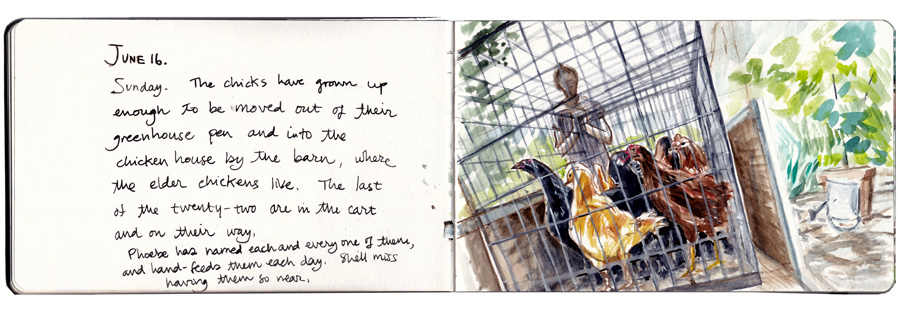 JUNE 16.
Sunday. The chicks have grown up
enough to be moved out of their
greenhouse pen and into the
chicken house by the barn, where
the elder chickens live. The last
of the twenty-two are in the cart
and on their way.
Phoebe has named each and every one of them,
and hand-feeds them each day. She'll miss
having them so near.